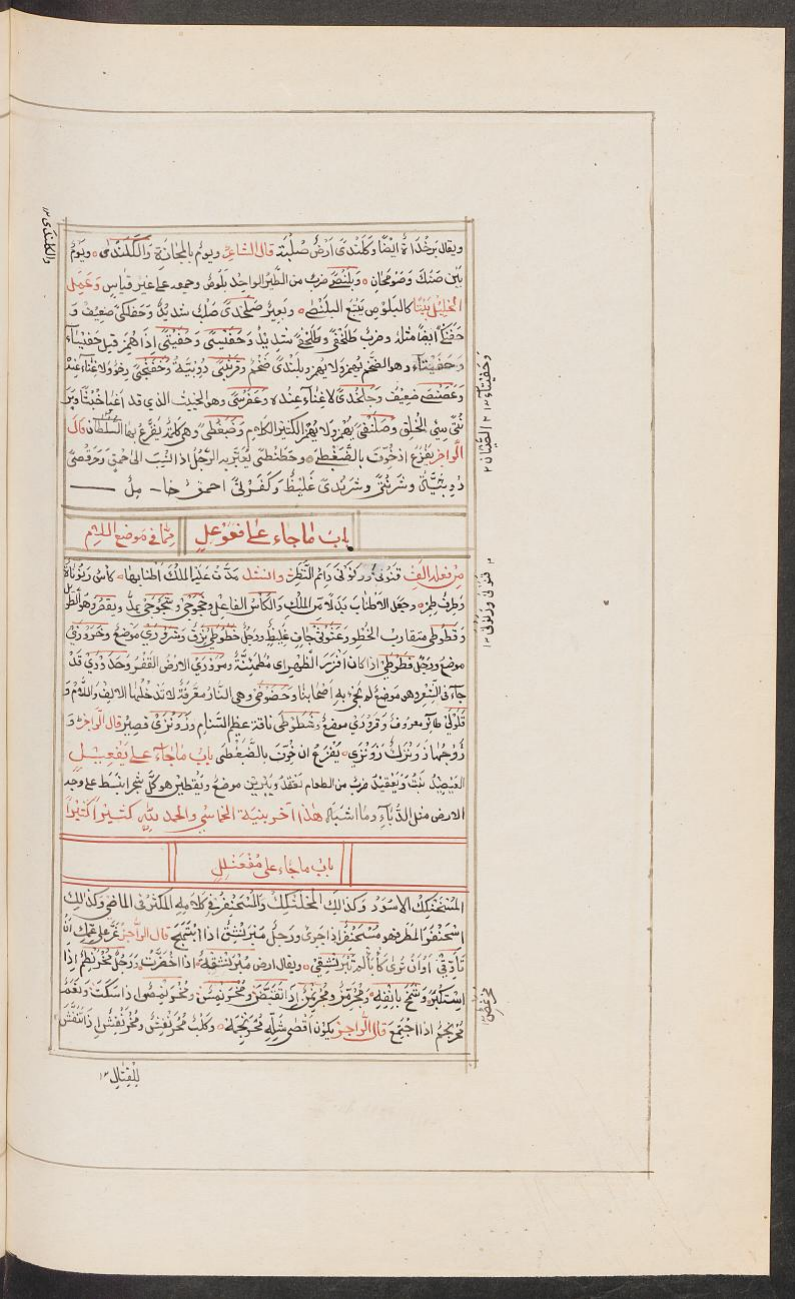 ويقال برخداة ايضًا وكلندى ارض صلبة قال الشاعر ويوم بالمجازة والكلندى ويوم
بين ضنك وصومحان وبلنصى ضرب من الطير الواحد بلصوص وجمعه على غير قياس وعمل
الخليل بيتًا كالبلصوص يتبع البلنصى وبعير صلخدى صلب شديد وحفلكى ضعيف و
حفنكى ايضًا مثله وضرب طلخفى وطلخفى شديد وحفيسى وحفيتى اذا همز قيل حفيتاء
وحفيتاء وهو الضخم يهمز ولا يهمز وبلندى ضخم وقرنبى دويبة وخفنجى رخو لا غناء عنده
وعصنصى ضعيف وجلندى لا غناء عنده وعفرسى وهو الخبيث الذى قد اعيا خبثًا وبر
نتى سىئ الخلق وصلنفى يهمز ولا يهمز الكثير الكلام وضبغطى وهى كلمة يفزع بها السلطان قال
الراجز يفزع اذ خوف بالضبغطى وحطنطى يعتر به الرجل اذا نسب الى حمق وحرقصى
دويبة وشرنتى وشرندى غليظ وكفرنى احمق خا مل
باب ما جاء على فعوعل مما فى موضع اللام
من فعله الف قنونى ورنونى دائم النظر وانشد مدت عليه الملك اطنابها كاس رنوناة
وطرف طمر وجعل الاطناب بدلا من الملك والكأس الفاعل وخجوجى وشجوجى يمد ويقصر وهو الطويل
وقطوطى متقارب الخطو وعثوثى جاف غليظ ورجل خطوطى نزق وشرورى موضع وحزوزى
موضع ورجل قطوطى اذا كان افزر الظهر اى مطمئنة ومروزى الارض القفر وحدودى قد
جاء فى الشعر وهو موضع لم يجئ به اصحابنا وحضوضى وهى النار معرفة لا تدخلها الالف واللام و
قلولى طائر معروف وقرورى موضع وشطوطى ناقة عظيم السنام وزونزى قصير قال الراجز و
زوجها زونزك زونزى يفزع ان خوف بالضبغطى باب ما جاء على يفعيل
اليعضيد نبت ويعقيد ضرب من الطعام يعقد ويبرين موضع ويقطين هو كل شجر انبسط على وجه
الارض مثل الدباء وما اشبهه هذا آخر بنية الخماسى والحمد لله كثيرا كثيرا
باب ما جاء على مفعنلل
المسحنكك الاسود وكذلك المحلنكك والمسحنفر فى كلامه المكثر فى الماضى وكذلك
اسحنفر المطر فهو مسحنفر اذا جرى ورجل مبرنشق اذا ابتهج قال الراجز عز على عمك ان
تأوقى او ان ترى كأباء لم تبرنشقى ويقال ارض مبرنشقة اذا اخضرت ورجل مخرنطم اذا
استكبر وشمخ بانفه ومجرمز ومجرنمز اذا تقبض ومخرنمس ومخرنمص اذا سكت وبغضة
محرنجم اذا اجتمع قال الراجز يكون اقصى شله محرنجمه وكلب محرنفش ومخرنفش اذا تنفش
للقتال ١٢
والكلندى ١٢
وحفيتاء ١٢
الصبيان ٢
قنونى ورنونى ١٢